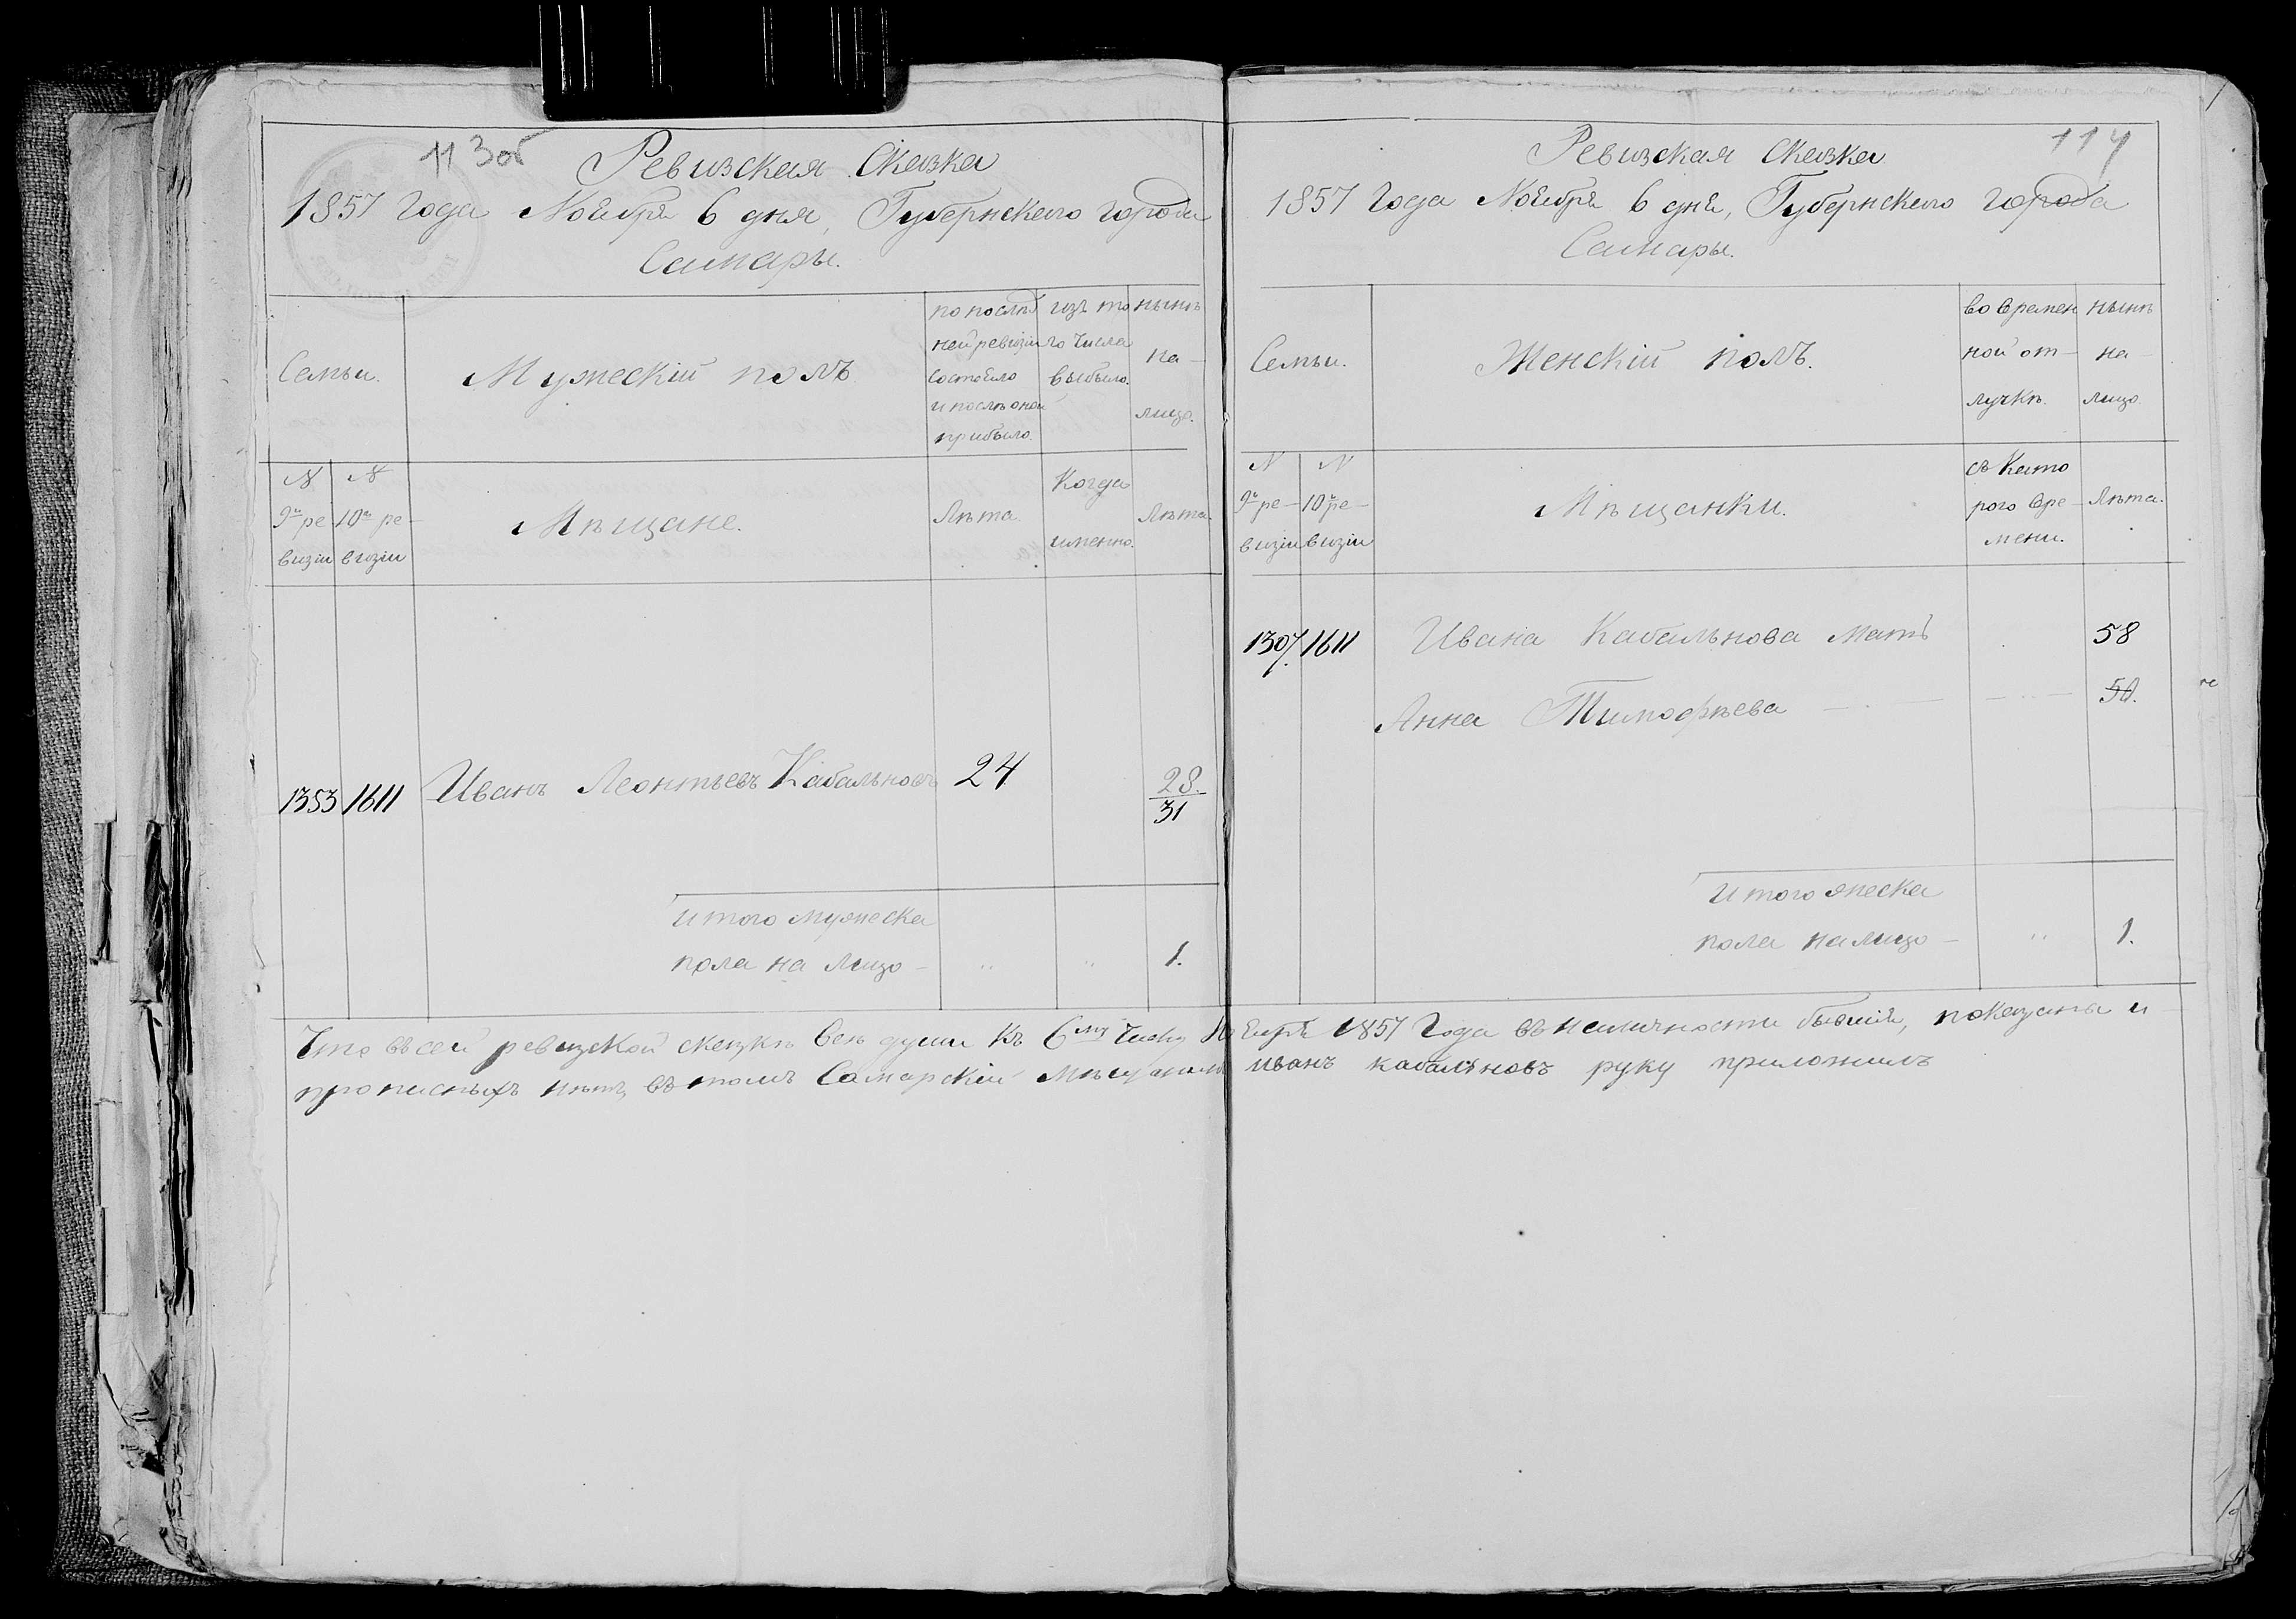 113об
Ревизская Сказка
1857 Года Ноября 6 дня, Губернскаго города
Самары.
Семьи.
Мужескій полъ
по послѣд
ней ревизіи
состояло
и послѣ оной
прибыло.
изъ то
го числа
выбыло.
нынѣ
на
лицо.
№
9й ре
визіи
№
10й ре-
визіи
Мѣщане.
Лѣта.
Когда
именно.
Лѣта.
1353 1611 Иванъ Леонтьевъ Кабальновъ 24 28.
31
Итого мужеска
пола на лицо - 1.
114
Ревизская Сказка
1857 Года Ноября 6 дня, Губернскаго города
Самары.
Семьи.
Женскій полъ.
во времен
ной от-
лучкѣ.
нынѣ
на-
лицо.
№
9й ре-
визіи
№
10й ре-
визіи
Мѣщанки.
съ кото
рого вре-
мени.
Лѣта.
1307. 1611 Ивана Кабальнова мать 58
Анна Тимофѣева 50.
Итого женска
пола на лицо - 1.
Что въ сей ревизской сказкѣ все души къ 6му числу Ноября 1857 Года въ наличности бывшія, показаны и
прописныхъ нѣтъ, въ томъ Самарскій мѣщанинъ иванъ кабальновъ руку приложилъ